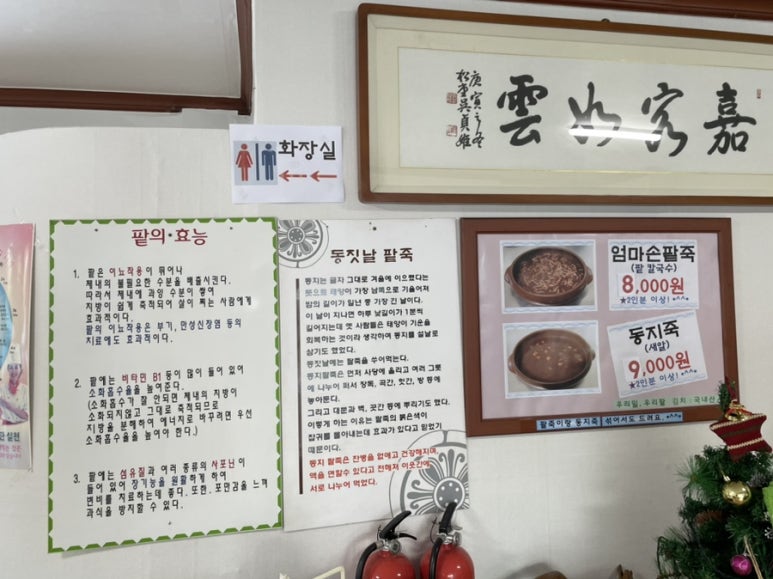 嘉客如雲
庚寅之冬
화장실
팥의·효능
1. 팥은 이뇨작용이 뛰어나
체내의 불필요한 수분을 배출시킨다.
따라서 체내에 과잉 수분이 쌓여
지방이 쉽게 축적되어 살이 찌는 사람에게
효과적이다.
팥의 이뇨작용은 부기, 만성신장염 등의
치료에도 효과적이다.
2. 팥에는 비타민 B1 등이 많이 들어 있어
소화흡수율을 높여준다.
(소화흡수가 잘 안되면 체내의 지방이
소화되지않고 그대로 축적되므로
지방을 분해하여 에너지로 바꾸려면 우선
소화흡수율을 높여야 한다.)
3. 팥에는 섬유질과 여러 종류의 사포닌이
들어 있어 장기능을 원활하게 하여
변비를 치료하는데 좋다. 또한, 포만감을 느껴
과식을 방지할 수 있다.
동짓날 팥죽
동지는 글자 그대로 겨울에 이르렀다는
뜻으로 태양이 가장 남쪽으로 기울어져
밤의 길이가 일년 중 가장 긴 날이다.
이 날이 지나면 하루 낮길이가 1분씩
길어지는데 옛 사람들은 태양이 기운을
회복하는 것이라 생각하여 동지를 설날로
삼기도 했었다.
동짓날에는 팥죽을 쑤어먹는다.
동지팥죽은 먼저 사당에 올리고 여러 그릇
에 나누어 퍼서 장독, 곡간, 헛간, 방 등에
놓아둔다.
그리고 대문과 벽, 곳간 등에 뿌리기도 했다.
이렇게 하는 이유는 팥죽의 붉은색이
잡귀를 몰아내는데 효과가 있다고 믿었기
때문이다.
동지 팥죽은 잔병을 없애고 건강해지며,
액을 면할수 있다고 전해져 이웃간에
서로 나누어 먹었다.
엄마손팥죽
(팥 칼국수)
8,000원
★2인분 이상! *^^*
동지죽
(새알)
9,000원
★2인분 이상! *^^*
우리밀, 우리팥 김치: 국내산
팥죽이랑 동지죽 섞어서도 드려요. *^^*